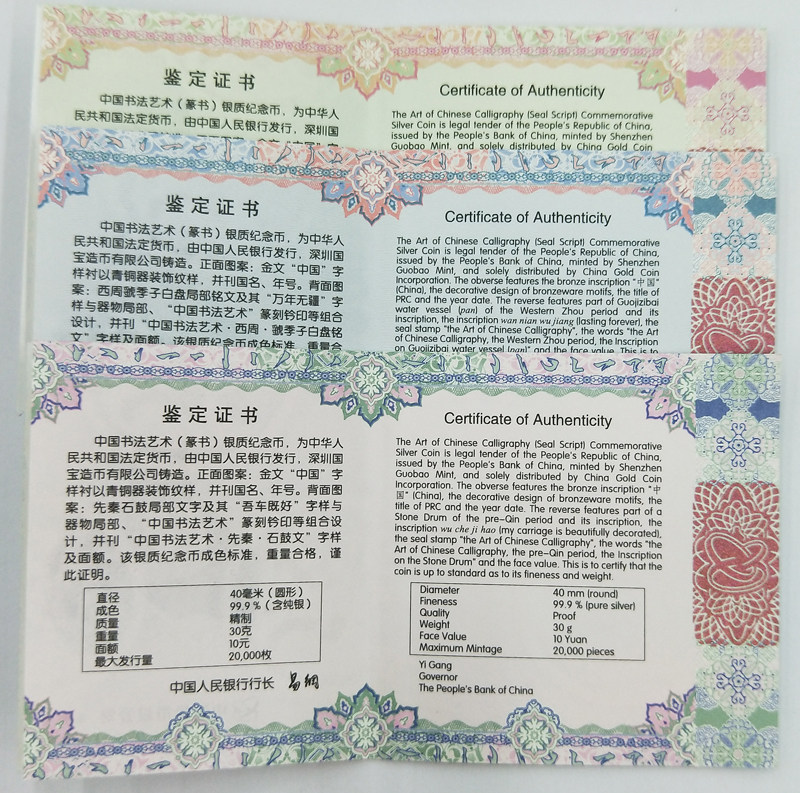 鉴定证书
中国书法艺术（篆书）银质纪念币，为中华人
民共和国法定货币，由中国人民银行发行，深圳国
Certificate of Authenticity
The Art of Chinese Calligraphy (Seal Script) Commemorative
Silver Coin is legal tender of the People's Republic of China,
issued by the People's Bank of China, minted by Shenzhen
Guobao Mint, and solely distributed by China Gold Coin
鉴定证书
中国书法艺术（篆书）银质纪念币，为中华人
民共和国法定货币，由中国人民银行发行，深圳国
宝造币有限公司铸造。正面图案：金文“中国”字
样衬以青铜器装饰纹样，并刊国名、年号。背面图
案：西周虢季子白盘局部铭文及其“万年无疆”字
样与器物局部、“中国书法艺术”篆刻钤印等组合
设计，并刊“中国书法艺术·西周·虢季子白盘铭
文”字样及面额。该银质纪念币成色标准，重量合
Certificate of Authenticity
The Art of Chinese Calligraphy (Seal Script) Commemorative
Silver Coin is legal tender of the People's Republic of China,
issued by the People's Bank of China, minted by Shenzhen
Guobao Mint, and solely distributed by China Gold Coin
Incorporation. The obverse features the bronze inscription "中国"
(China), the decorative design of bronzeware motifs, the title of
PRC and the year date. The reverse features part of Guojizibai
water vessel (pan) of the Western Zhou period and its
inscription, the inscription wan nian wu jiang (lasting forever), the
seal stamp "the Art of Chinese Calligraphy", the words "the Art
of Chinese Calligraphy, the Western Zhou period, the Inscription
on Guojizibai water vessel (pan)" and the face value. This is to
鉴定证书
中国书法艺术（篆书）银质纪念币，为中华人
民共和国法定货币，由中国人民银行发行，深圳国
宝造币有限公司铸造。正面图案：金文“中国”字
样衬以青铜器装饰纹样，并刊国名、年号。背面图
案：先秦石鼓局部文字及其“吾车既好”字样与
器物局部、“中国书法艺术”篆刻钤印等组合设
计，并刊“中国书法艺术·先秦·石鼓文”字样
及面额。该银质纪念币成色标准，重量合格，谨
此证明。
直径 40毫米（圆形）
成色 99.9％（含纯银）
质量 精制
重量 30克
面额 10元
最大发行量 20,000枚
中国人民银行行长 易纲
Certificate of Authenticity
The Art of Chinese Calligraphy (Seal Script) Commemorative
Silver Coin is legal tender of the People's Republic of China,
issued by the People's Bank of China, minted by Shenzhen
Guobao Mint, and solely distributed by China Gold Coin
Incorporation. The obverse features the bronze inscription "中
国" (China), the decorative design of bronzeware motifs, the
title of PRC and the year date. The reverse features part of a
Stone Drum of the pre-Qin period and its inscription, the
inscription wu che ji hao (my carriage is beautifully decorated),
the seal stamp "the Art of Chinese Calligraphy", the words "the
Art of Chinese Calligraphy, the pre-Qin period, the Inscription
on the Stone Drum" and the face value. This is to certify that the
coin is up to standard as to its fineness and weight.
Diameter 40 mm (round)
Fineness 99.9 % (pure silver)
Quality Proof
Weight 30 g
Face Value 10 Yuan
Maximum Mintage 20,000 pieces
Yi Gang
Governor
The People's Bank of China